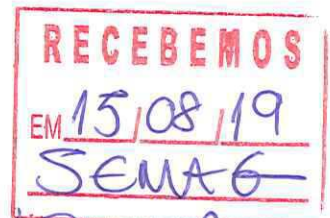 RECEBEMOS
EM 15/08/19
SEMAG